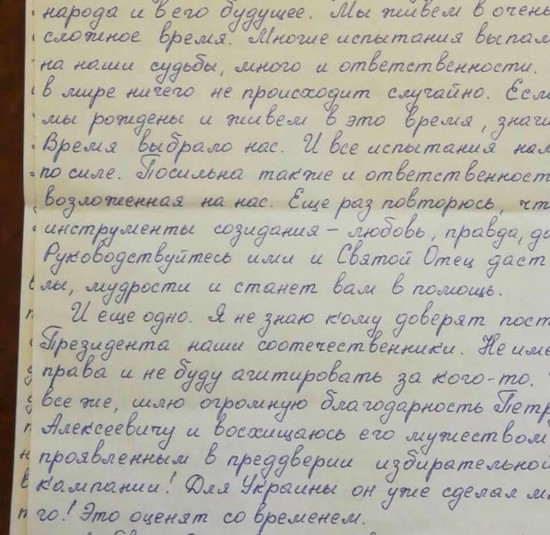 народа и в его будущее. Мы живем в очень
сложное время. Многие испытания выпали
на наши судьбы, много и ответственности.
в мире ничего не происходит случайно. Если
мы рождены и живем в это время, значи
Время выбрало нас. И все испытания нам
по силе. Посильна также и ответственност
возложенная на нас. Еще раз повторюсь, чт
инструменты созидания – любовь, правда, до
Руководствуйтесь ими и Святой Отец даст
лы, мудрости и станет вам в помощь.
И еще одно. Я не знаю кому доверят пост
Президента наши соотечественники. Не име
права и не буду агитировать за кого-то.
все же, шлю огромную благодарность Петр
Алексеевичу и восхищаюсь его мужеством
проявленным в преддверии избирательной
кампании! Для Украины он уже сделал мн
го! Это оценят со временем.